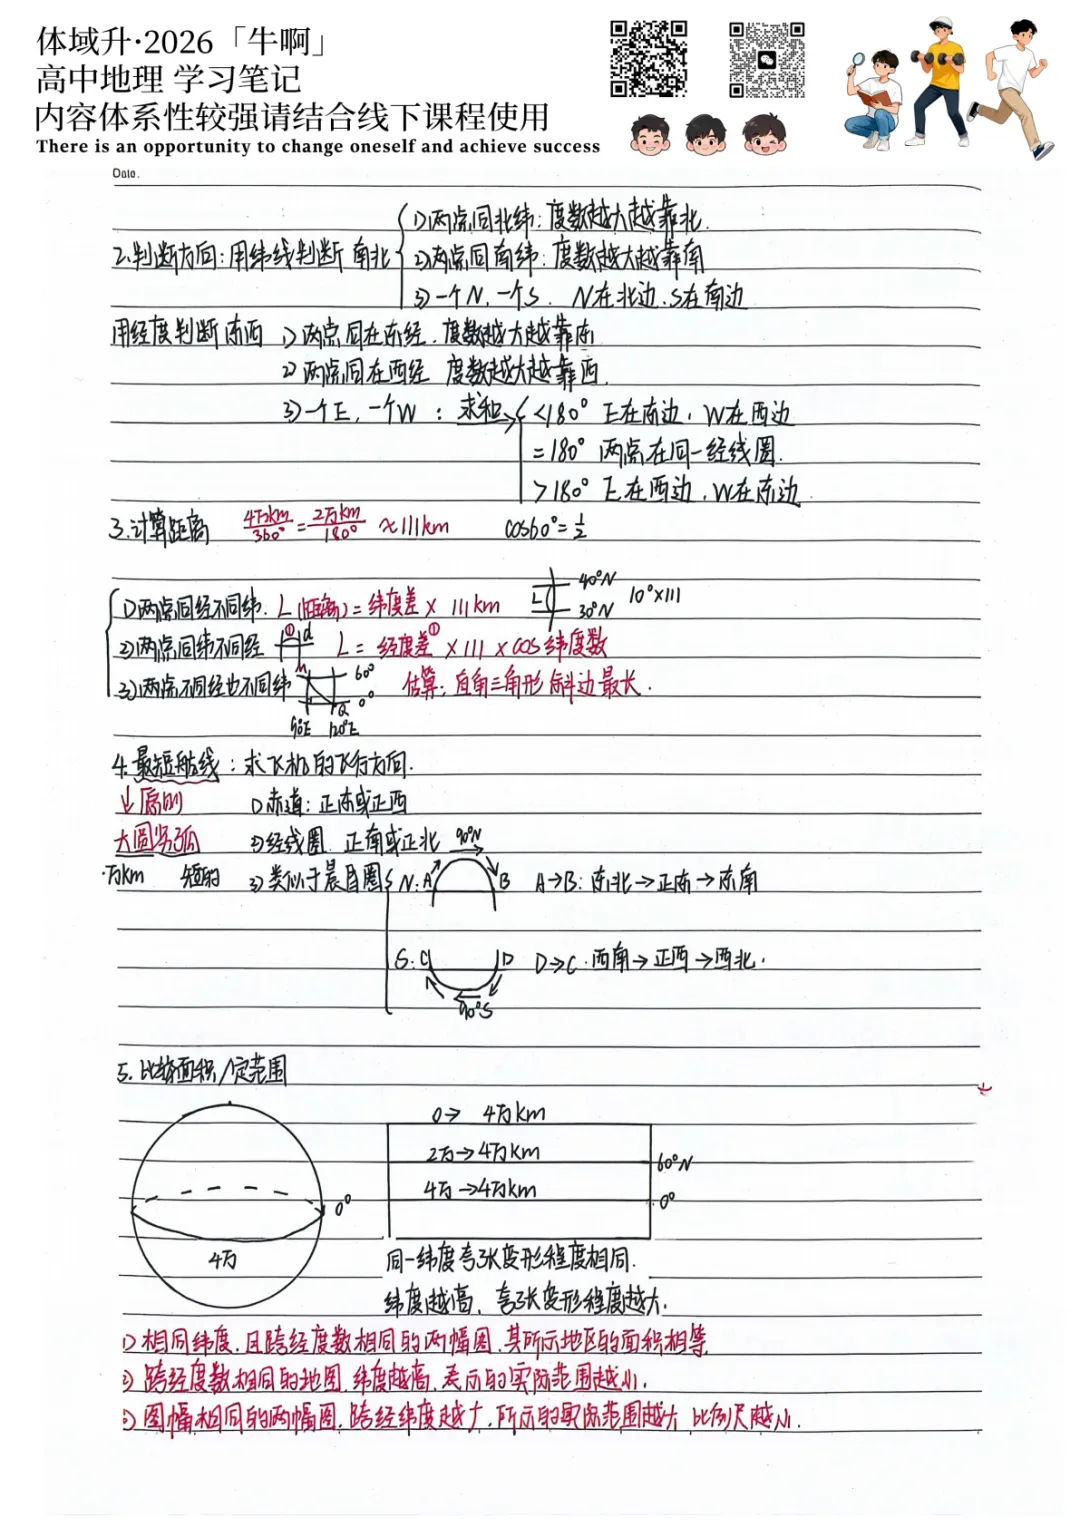 体域升·2026「牛啊」
高中地理 学习笔记
内容体系性较强请结合线下课程使用
There is an opportunity to change oneself and achieve success
Date.
2.判断方向:用纬线判断南北
1)两点同北纬:度数越大越靠北.
2)两点同南纬:度数越大越靠南
3)一个N,一个S. N在北边,S在南边
用经度判断东西 1)两点同在东经,度数越大越靠东
2)两点同在西经 度数越大越靠西.
3)一个E,一个W:求和
<180° E在东边,W在西边
=180° 两点在同一经线圈.
>180° E在西边,W在东边
3.计算距离 4万km/360°=2万km/180° ≈111km cos60°=1/2
1)两点同经不同纬. L(距离)=纬度差×111km L 40°N 30°N 10°×111
2)两点同纬不同经 ① d L=经度差①×111×cos纬度数
3)两点不同经也不同纬 M 60° Q 0° 90°E 120°E 估算:直角三角形斜边最长.
4.最短航线:求飞机的飞行方向.
↓原则 1)赤道:正东或正西
大圆劣弧 2)经线圈 正南或正北 90°N
万km 短的 3)类似于晨昏圈 N: A B A→B:东北→正东→东南
S: C D D→C:西南→正西→西北.
90°S
5.比较面积/定范围
0→4万km
2万→4万km 60°N
4万→4万km 0°
0°
4万
同一纬度夸张变形程度相同.
纬度越高,夸张变形程度越大.
1)相同纬度,且跨经度数相同的两幅图,其所示地区的面积相等
2)跨经度数相同的地图,纬度越高,表示的实际范围越小.
3)图幅相同的两幅图,跨经纬度越广,所示的实际范围越大 比例尺越小.